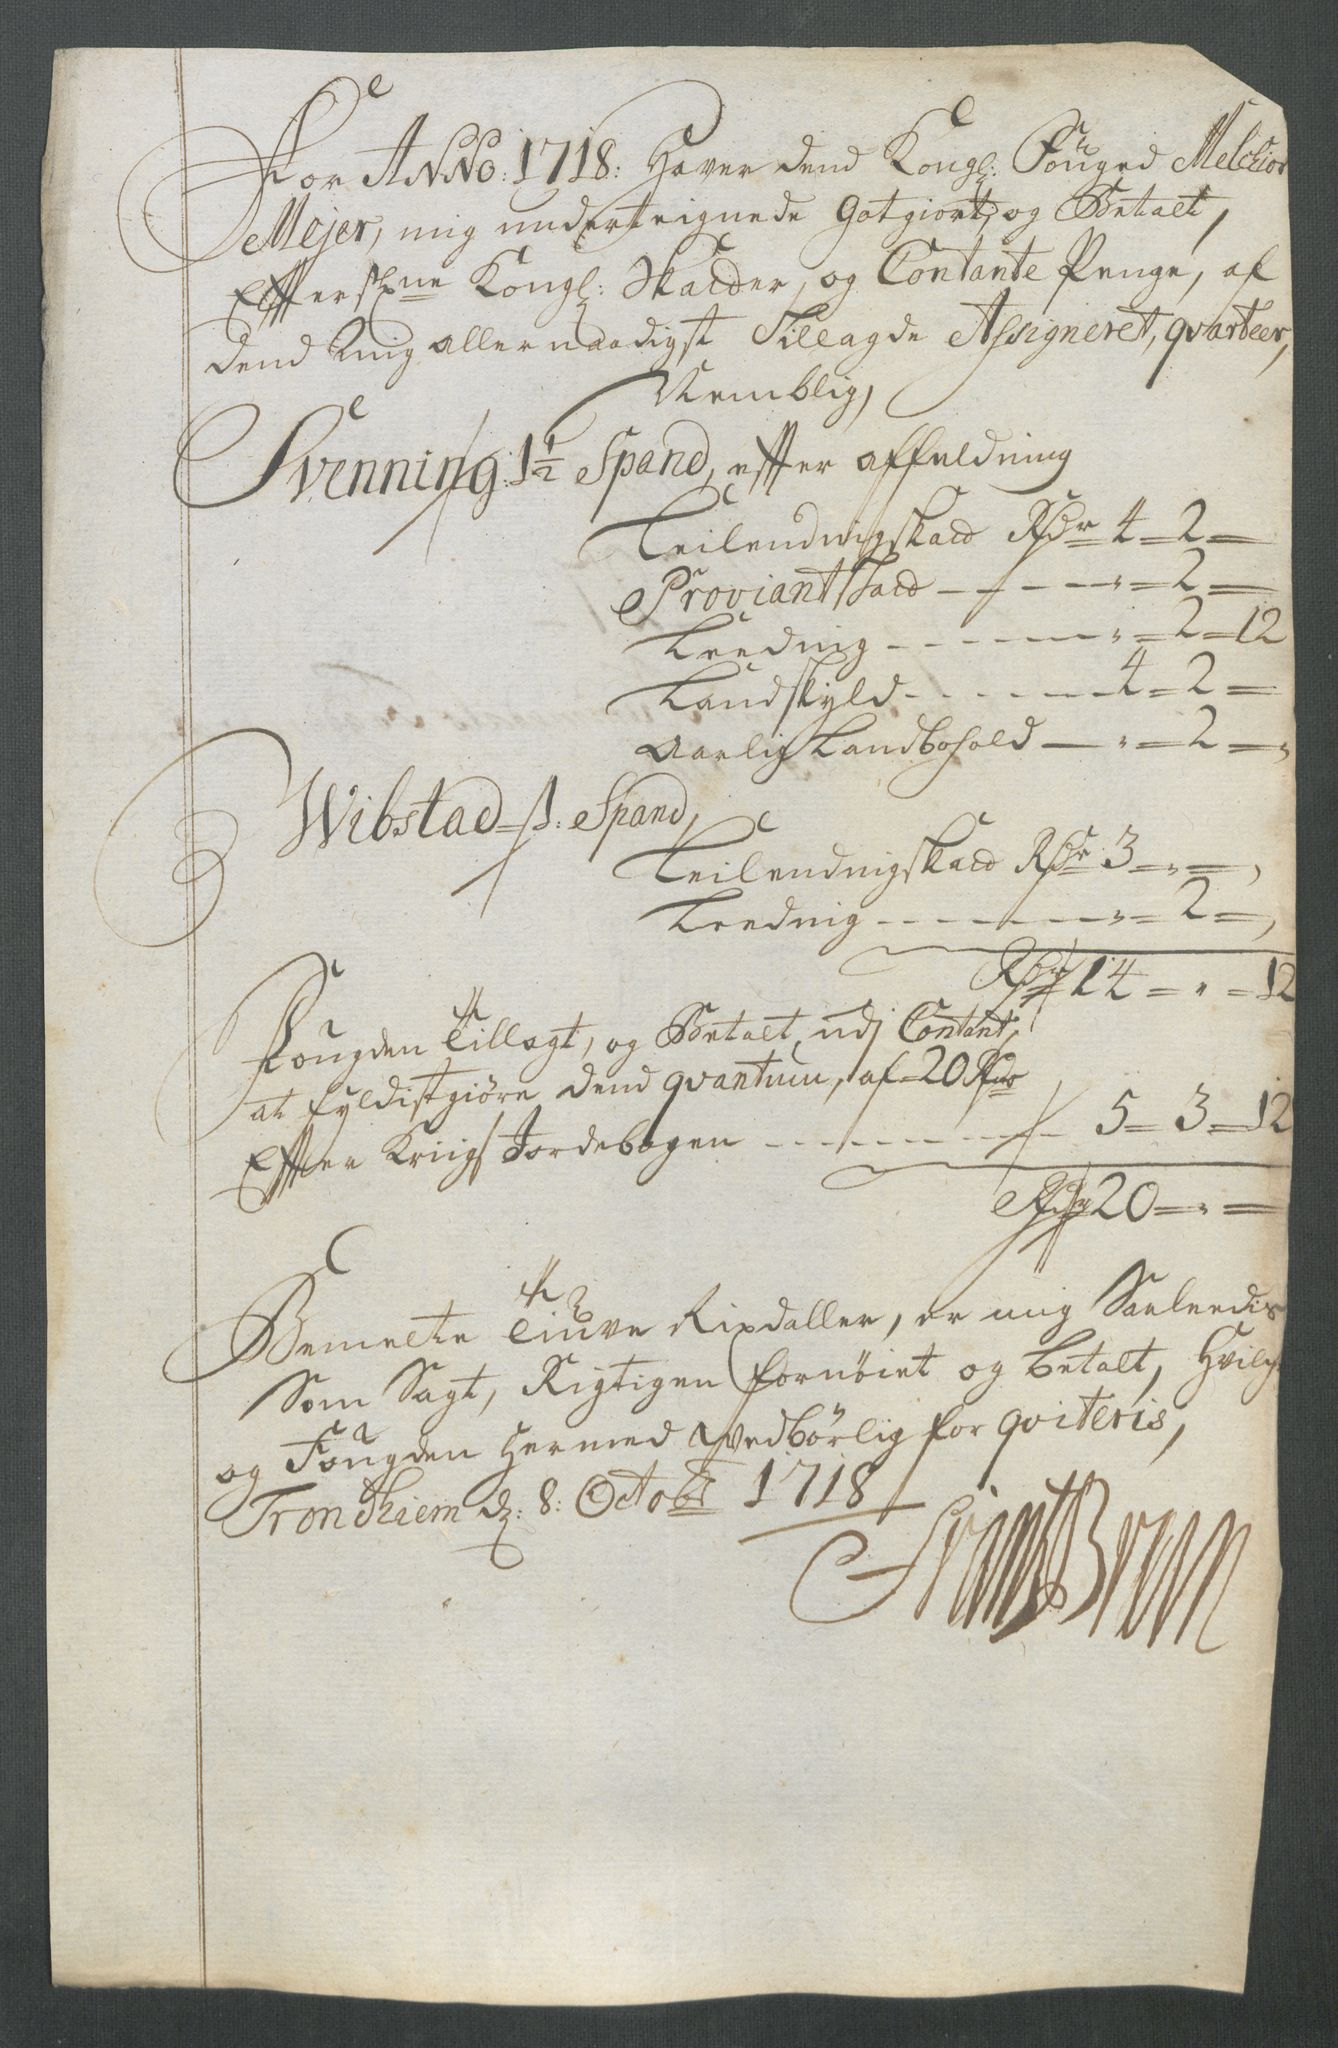 For ANNO: 1718: Haver dend Kongl: Fouged Melchior
Mejer, mig underteignede Gotgiort, og Betalt,
Effterskrne Kongl: Skatter, og Contante Penge, af
dend mig allernaadigst Tillagde Assigneret, qvarteer,
Nemblig,
Svenning: 1½ Spand, effter affældning
Leilendingskatt Rdr 4 = 2 =
Proviantskatt - - - " = 2 =
Leeding - - - " = 2 = 12
Landskyld - - - 4 = 2 =
Aarlig Landbohold - " = 2 = "
Wibstad = 1: Spand,
Leilendingskatt Rdr 3 = " = "
Leeding - - - " = 2 = "
Rdr 14 = " = 12
Fougden Tillagt, og Betalt, udj Contant,
at fyldistgiøre dend qvantum, af 20 Rdr
Effter Krigs Jordebogen - - - 5 = 3 = 12
Rdr 20 = " =
Bemelte Tiuve Rixdaller, er mig Saaleedis
Som Sagt, Rigtigen fornøiet og betalt, Hvilche
og Fougden Hermed Vedbørlig for qviteris,
Trondhiem d: 8: Octobr 1718
Frantz Bruun